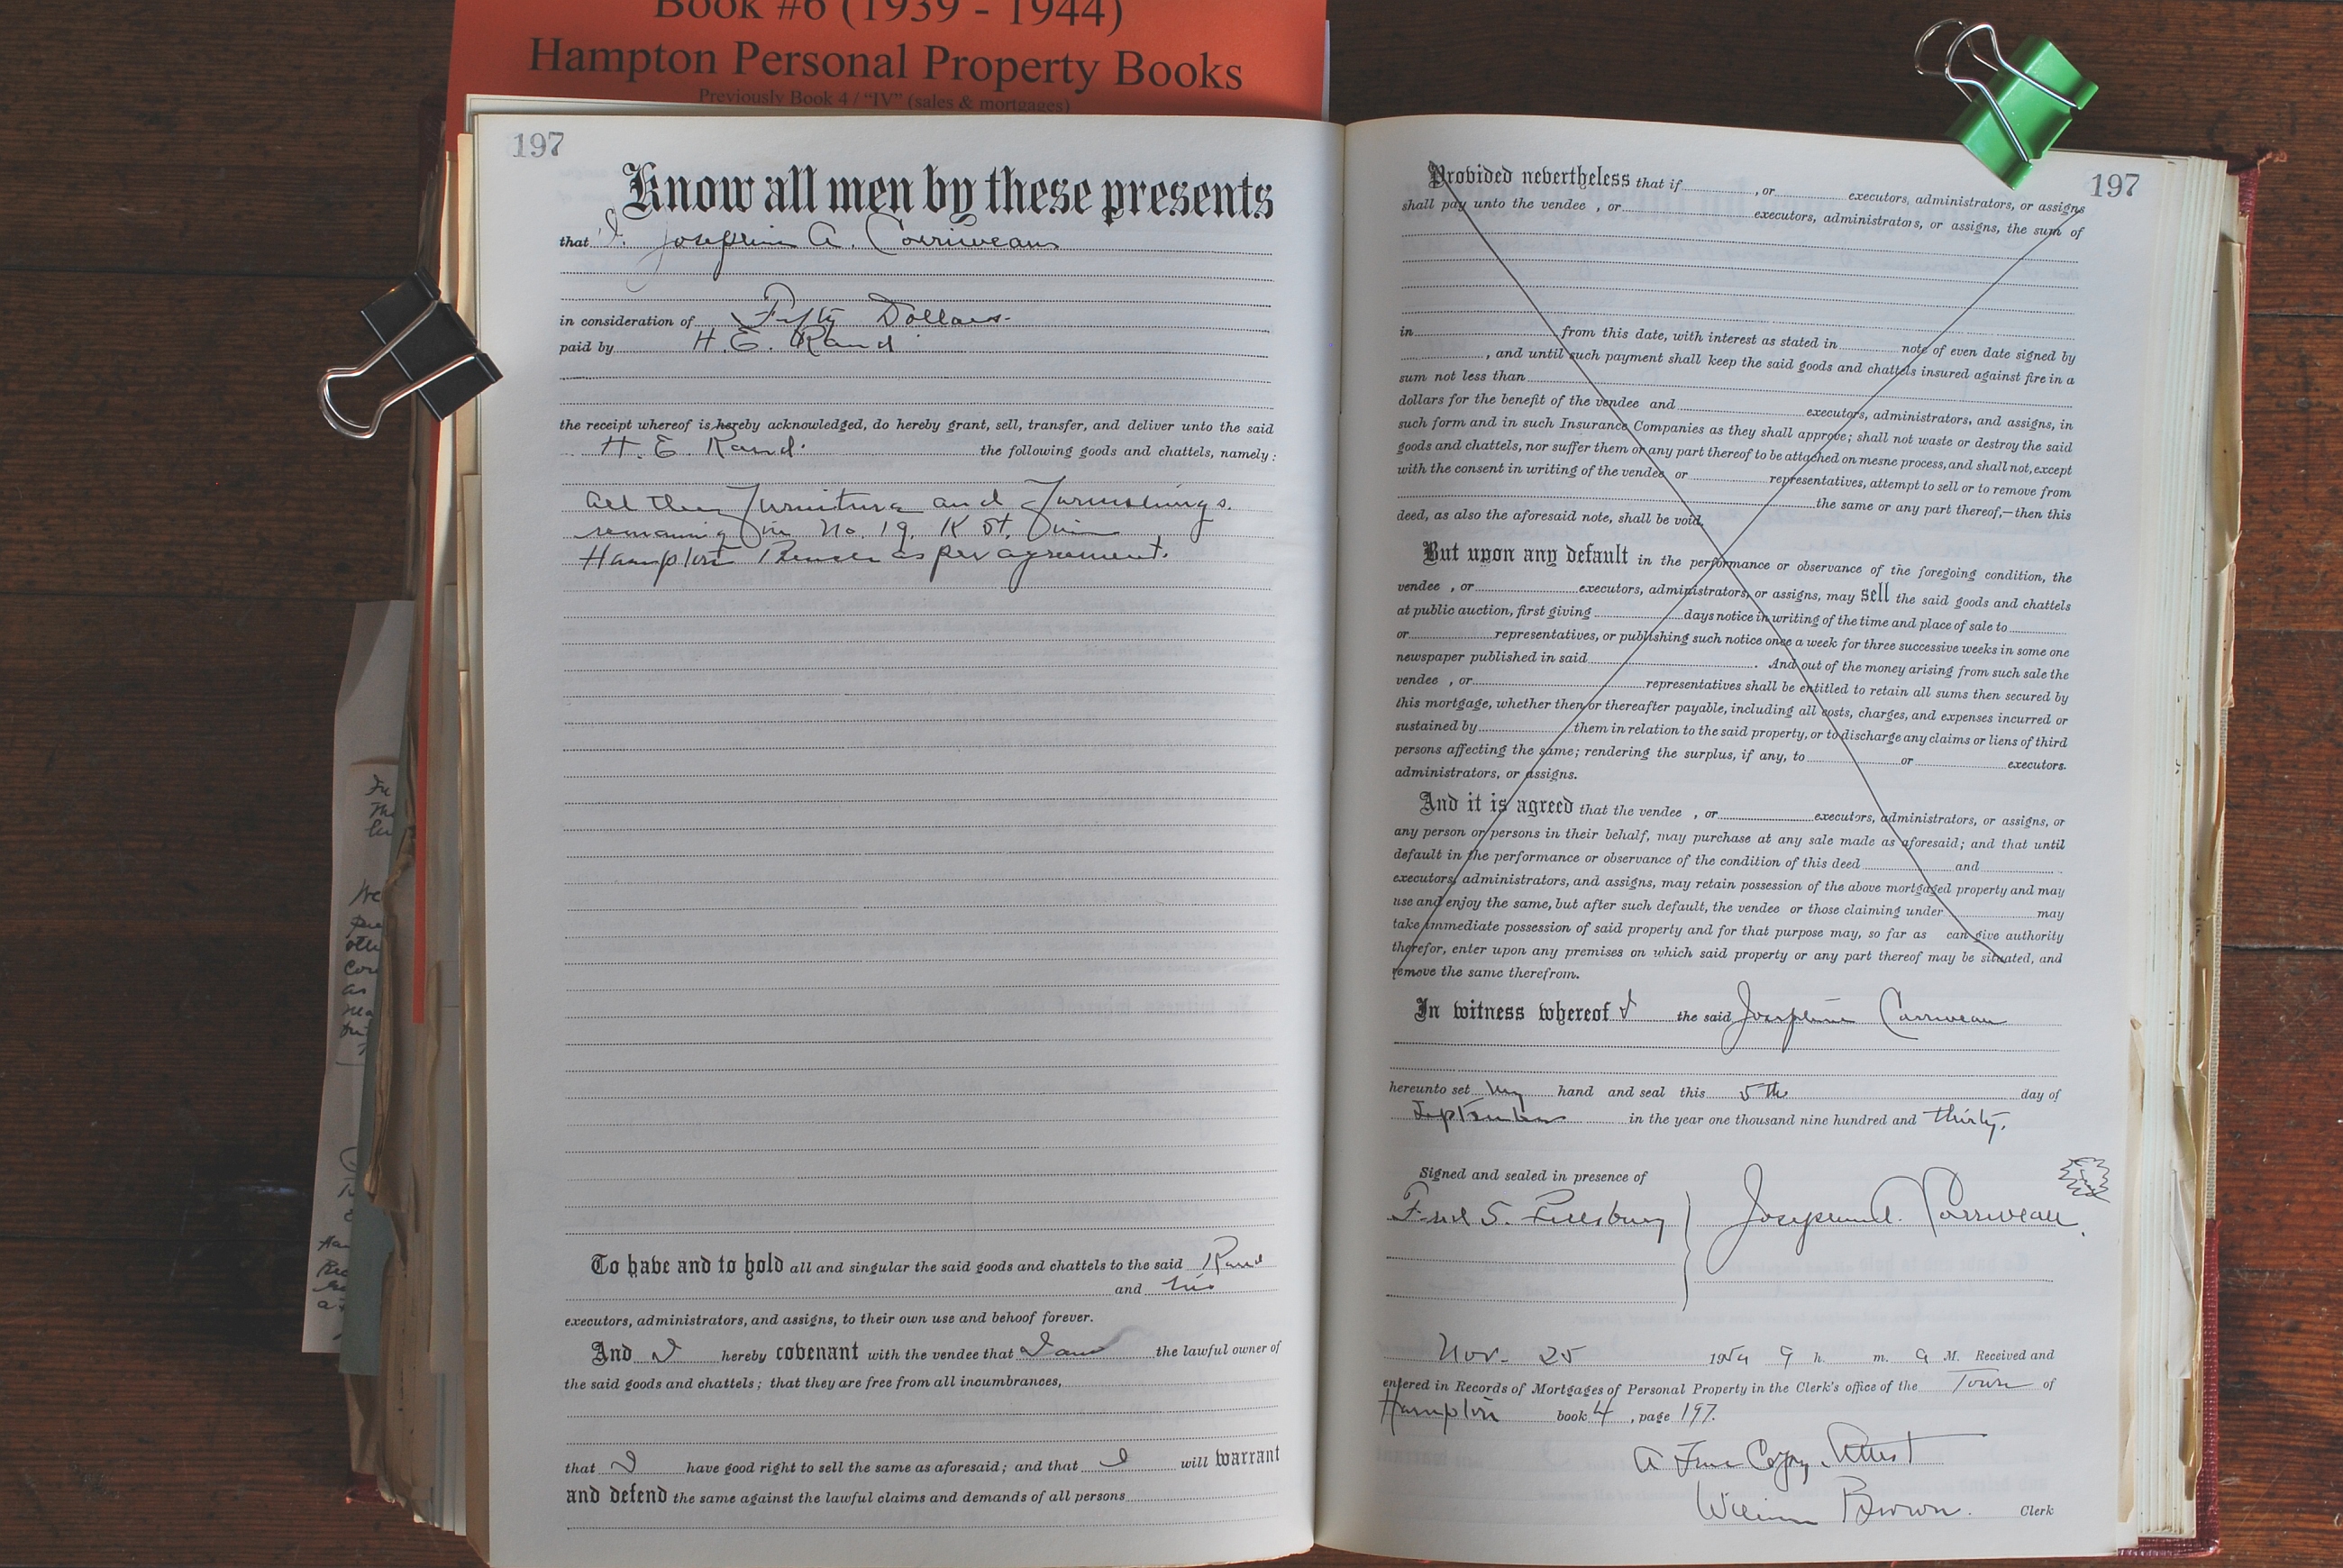 Book #6 (1939 - 1944)
Hampton Personal Property Books
Previously Book 4 / "IV" (sales & mortgages)
197
Know all men by these presents
that I. Josephine A. Corriveau
in consideration of Fifty Dollars-
paid by H. E. Rand
the receipt whereof is hereby acknowledged, do hereby grant, sell, transfer, and deliver unto the said
H. E Rand. the following goods and chattels, namely:
all the Furniture and Furnishings.
remaining in No. 19, K St. in
Hampton Beach as per agreement.
To have and to hold all and singular the said goods and chattels to the said Rand
and his
executors, administrators, and assigns, to their own use and behoof forever.
And I hereby covenant with the vendee that I am the lawful owner of
the said goods and chattels; that they are free from all incumbrances,
that I have good right to sell the same as aforesaid; and that I will warrant
and defend the same against the lawful claims and demands of all persons
197
Provided nevertheless that if , or executors, administrators, or assigns
shall pay unto the vendee , or executors, administrators, or assigns, the sum of
in from this date, with interest as stated in note of even date signed by
, and until such payment shall keep the said goods and chattels insured against fire in a
sum not less than
dollars for the benefit of the vendee and executors, administrators, and assigns, in
such form and in such Insurance Companies as they shall approve; shall not waste or destroy the said
goods and chattels, nor suffer them or any part thereof to be attached on mesne process, and shall not, except
with the consent in writing of the vendee or representatives, attempt to sell or to remove from
the same or any part thereof,—then this
deed, as also the aforesaid note, shall be void.
But upon any default in the performance or observance of the foregoing condition, the
vendee , or executors, administrators, or assigns, may sell the said goods and chattels
at public auction, first giving days notice in writing of the time and place of sale to
or representatives, or publishing such notice once a week for three successive weeks in some one
newspaper published in said . And out of the money arising from such sale the
vendee , or representatives shall be entitled to retain all sums then secured by
this mortgage, whether then or thereafter payable, including all costs, charges, and expenses incurred or
sustained by them in relation to the said property, or to discharge any claims or liens of third
persons affecting the same; rendering the surplus, if any, to or executors.
administrators, or assigns.
And it is agreed that the vendee , or executors, administrators, or assigns, or
any person or persons in their behalf, may purchase at any sale made as aforesaid; and that until
default in the performance or observance of the condition of this deed and
executors, administrators, and assigns, may retain possession of the above mortgaged property and may
use and enjoy the same, but after such default, the vendee or those claiming under may
take immediate possession of said property and for that purpose may, so far as can give authority
therefor, enter upon any premises on which said property or any part thereof may be situated, and
remove the same therefrom.
In witness whereof I the said Josephine Corriveau
hereunto set my hand and seal this 5th day of
September in the year one thousand nine hundred and thirty.
Signed and sealed in presence of
Fred S. Pillsbury Josephine A. Corriveau.
Nov. 25 9 h. m. a M. Received and
entered in Records of Mortgages of Personal Property in the Clerk's office of the Town of
Hampton book 4, page 197.
A True Copy, Attest
William Brown. Clerk